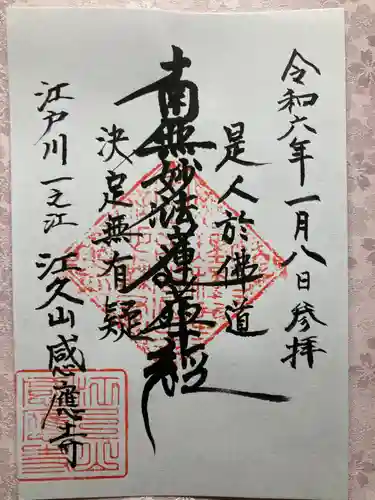 令和六年一月八日参拝
是人於佛道
南無妙法蓮華経
決定無有疑
江戸川一之江
江久山感應寺